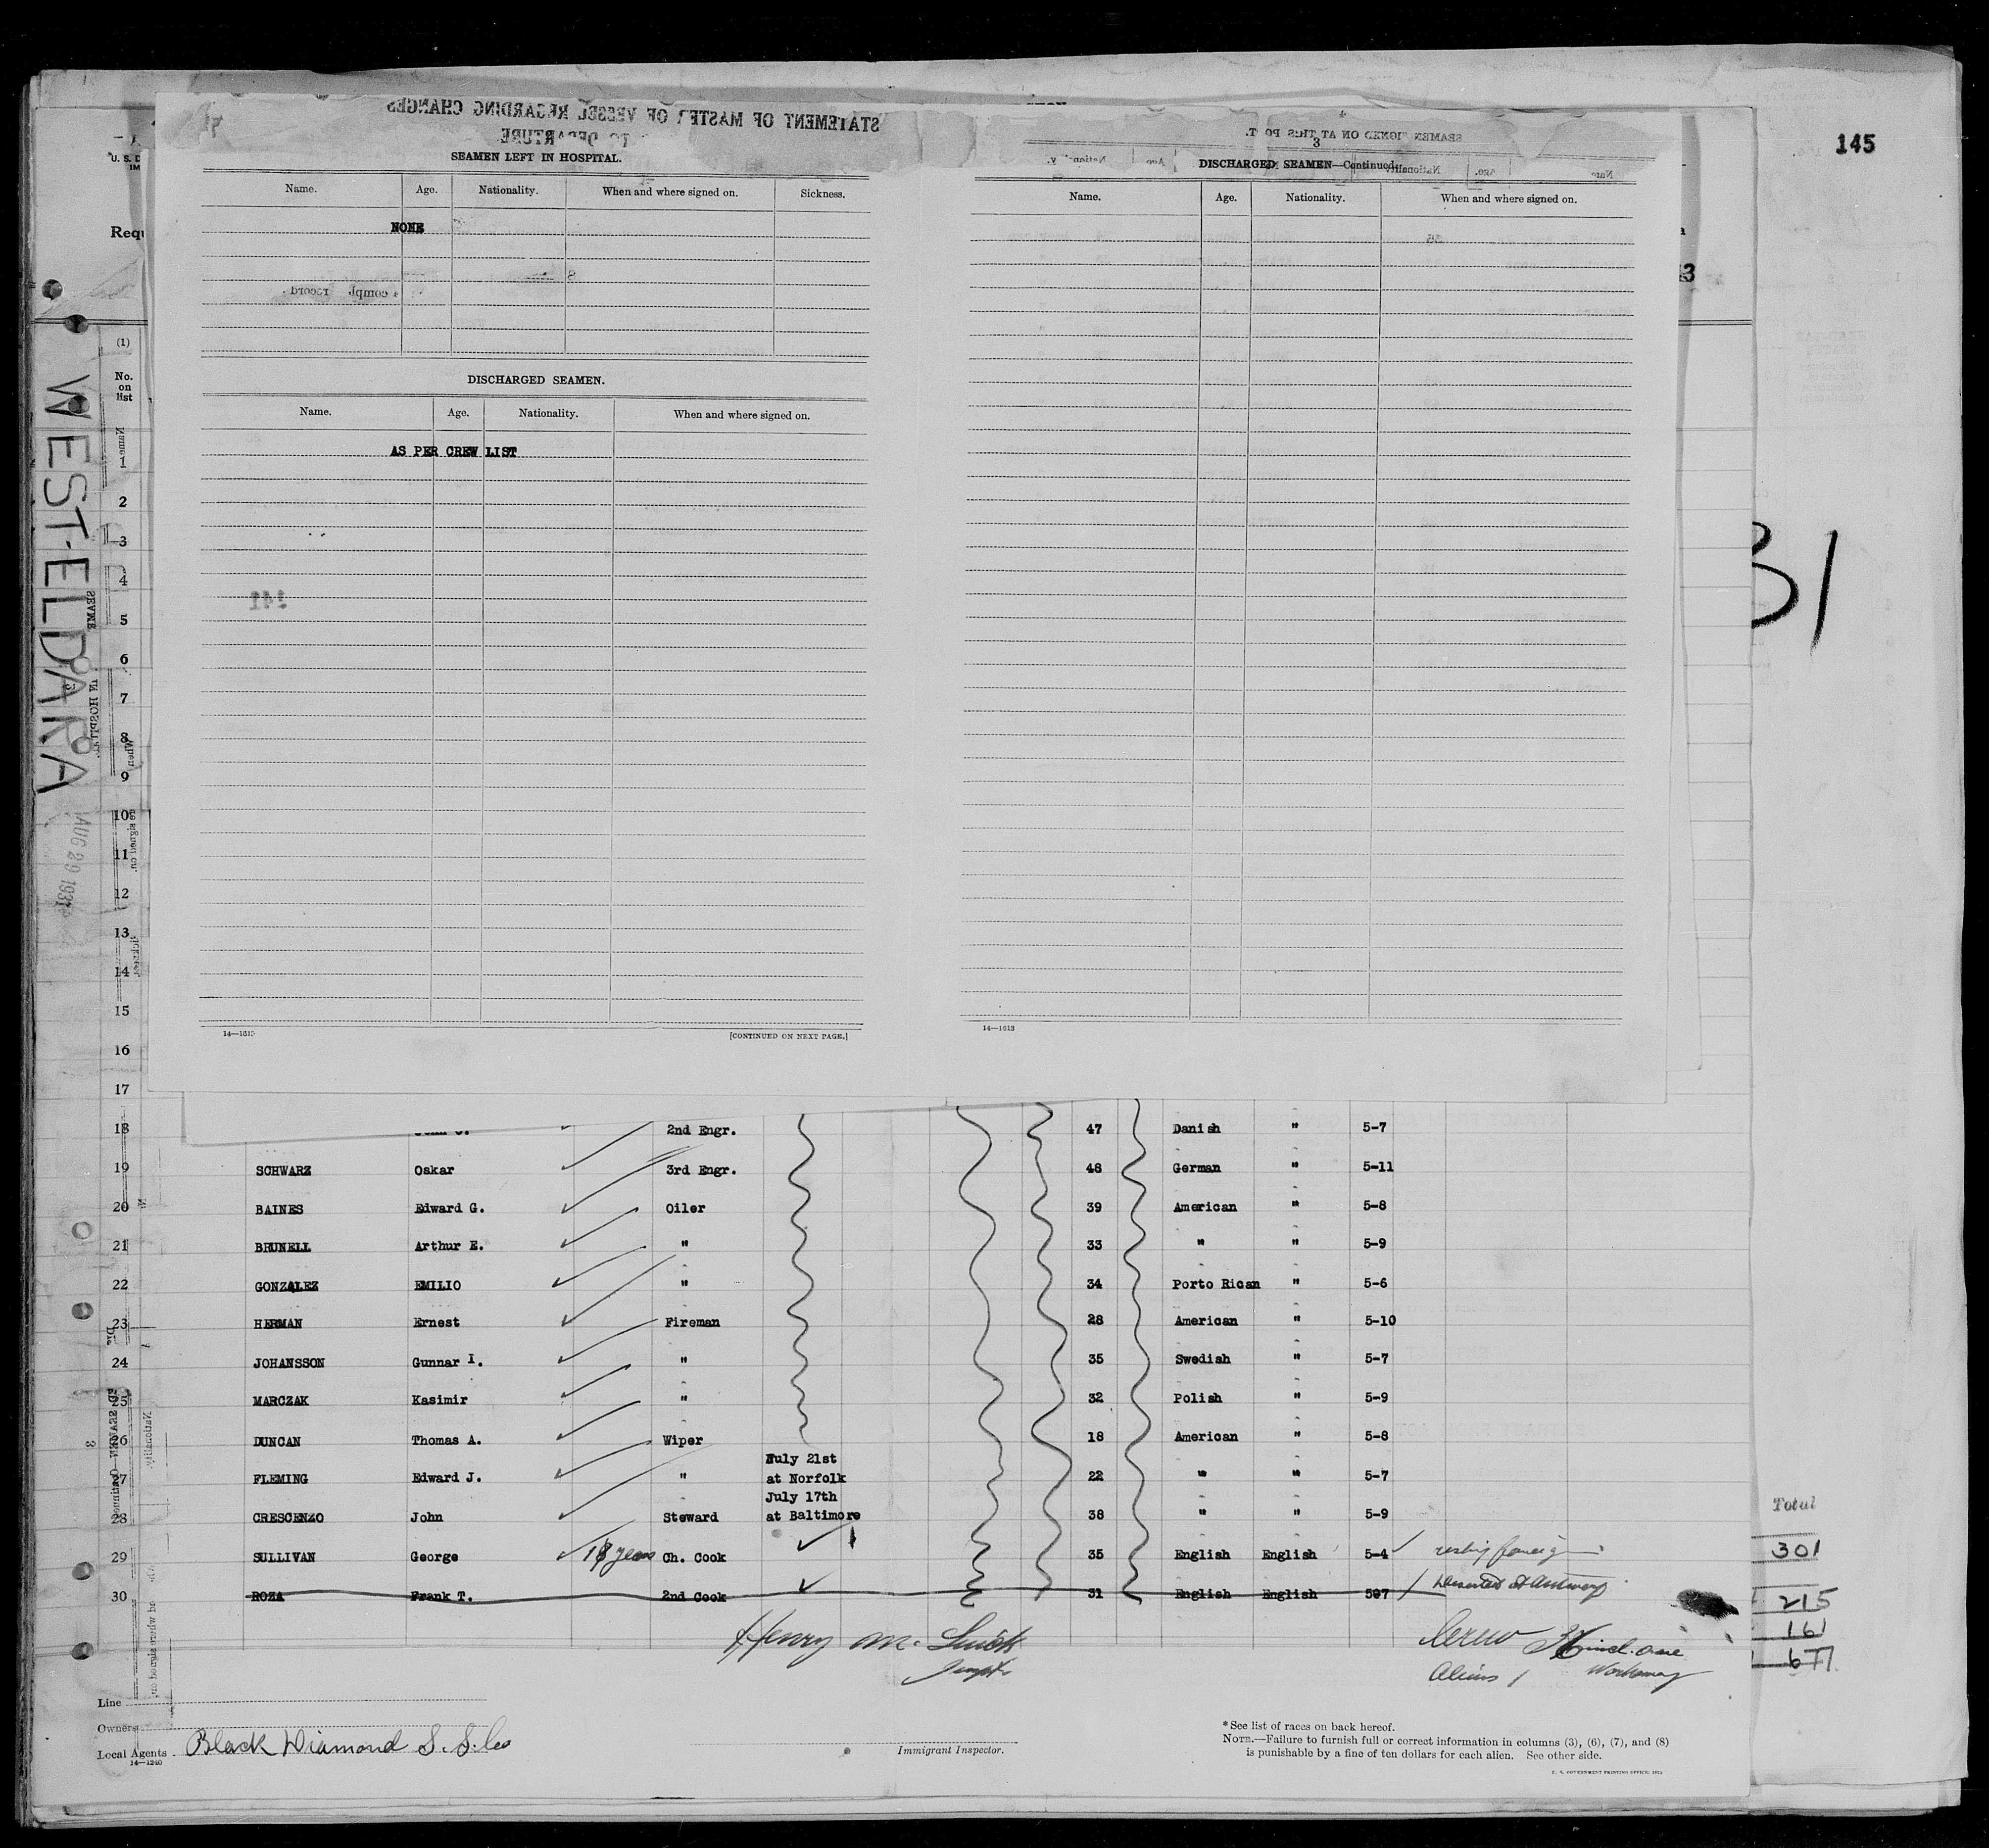 145
STATEMENT OF MASTER OF VESSEL REGARDING CHANGES
SEAMEN LEFT IN HOSPITAL.
Name. Age. Nationality. When and where signed on. Sickness.
NONE
DISCHARGED SEAMEN.
Name. Age. Nationality. When and where signed on.
AS PER CREW LIST
141
14—1613 [CONTINUED ON NEXT PAGE.]
SEAMEN SIGNED ON AT THIS PORT.
3
DISCHARGED SEAMEN—Continued.
Name. Age. Nationality. When and where signed on.
14—1613
WEST-ELDARA
AUG 29 1931
31
(1)
No. on list
1
2
3
4
5
6
7
8
9
10
11
12
13
14
15
16
17
18 2nd Engr. 47 Danish " 5-7
19 SCHWARZ Oskar 3rd Engr. 48 German " 5-11
20 BAINES Edward G. Oiler 39 American " 5-8
21 BRUNELL Arthur E. " 33 " " 5-9
22 GONZALEZ EMILIO " 34 Porto Rican " 5-6
23 HERMAN Ernest Fireman 28 American " 5-10
24 JOHANSSON Gunnar I. " 35 Swedish " 5-7
25 MARCZAK Kasimir " 32 Polish " 5-9
26 DUNCAN Thomas A. Wiper 18 American " 5-8
27 FLEMING Edward J. " July 21st at Norfolk 22 " " 5-7
28 CRESCENZO John Steward July 17th at Baltimore 38 " " 5-9
29 SULLIVAN George 18 years Ch. Cook 35 English English 5-4 reship foreign
30 ROZA Frank T. 2nd Cook 31 English English 507 Deserted at Antwerp
Total
301
215
161
677
Henry M.
Crew incl. one
Aliens 1 Workaway
Line
Owners
Local Agents Black Diamond S. S. Co
14—1240
Immigrant Inspector.
*See list of races on back hereof.
NOTE.—Failure to furnish full or correct information in columns (3), (6), (7), and (8)
is punishable by a fine of ten dollars for each alien. See other side.